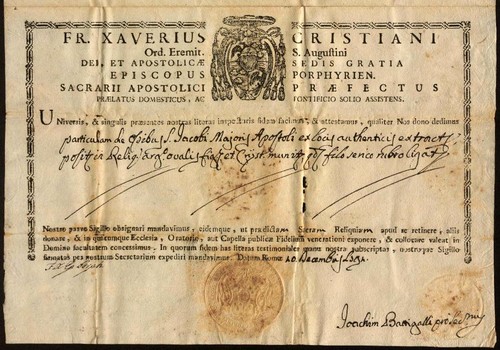 FR. XAVERIUS CRISTIANI
Ord. Eremit. S. Augustini
DEI, ET APOSTOLICÆ SEDIS GRATIA
EPISCOPUS PORPHYRIEN.
SACRARII APOSTOLICI PRÆFECTUS
PRÆLATUS DOMESTICUS, AC PONTIFICIO SOLIO ASSISTENS.
Universis, & singulis præsentes nostras literas inspecturis fidem facimus, & attestamur, qualiter Nos dono dedimus
particulam de Ossibus S. Jacobi Majoris Apostoli ex locis authenticis extract
posit in Reliq ovalis fig et Crist munit filo serico rubro ligat
Nostro parvo Sigillo obsignari mandavimus, eidemque, ut prædictam Sacram Reliquiam apud se retinere, aliis
donare, & in quacumque Ecclesia, Oratorio, aut Capella publicæ Fidelium venerationi exponere, & collocare valeat in
Domino facultatem concessimus. In quorum fidem has literas testimoniales manu nostra subscriptas, nostroque Sigillo
firmatas per nostrum Secretarium expediri mandavimus. Datum Romæ 20 Decembris
Joachim Battigalli